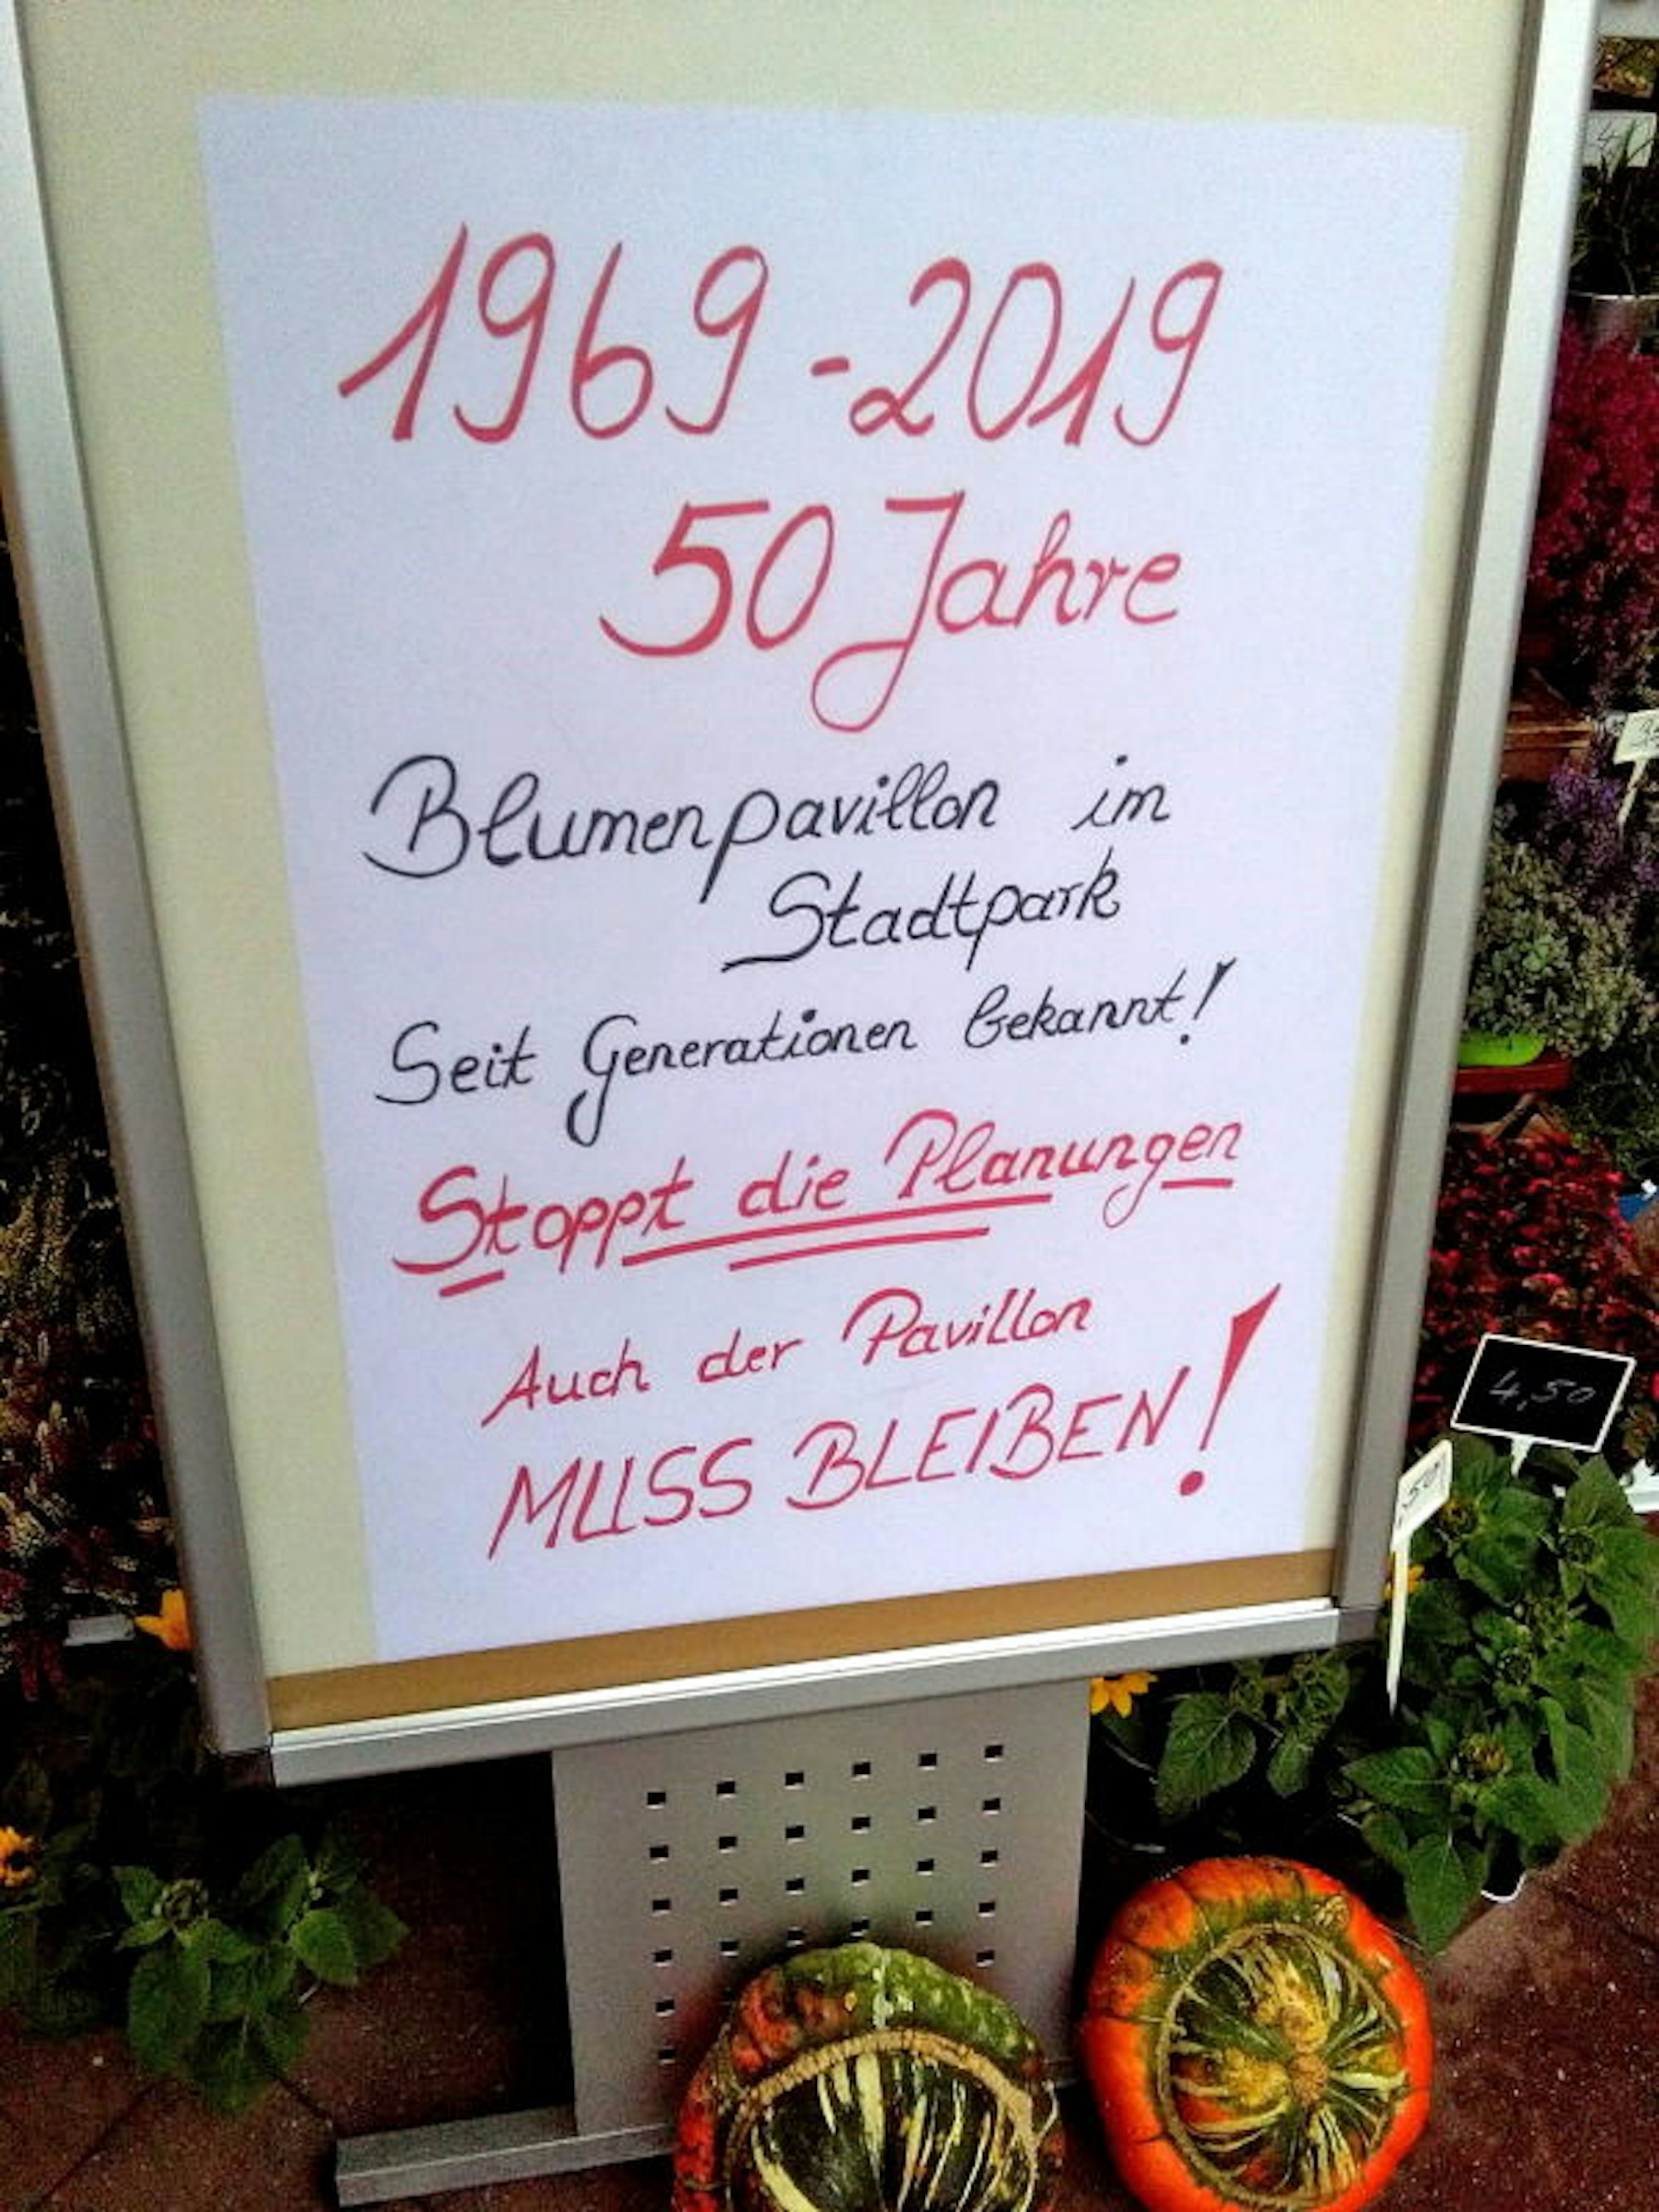 1969-2019
50 Jahre
Blumenpavillon im
Stadtpark
Seit Generationen bekannt!
Stoppt die Planungen
Auch der Pavillon
MUSS BLEIBEN!
4,50